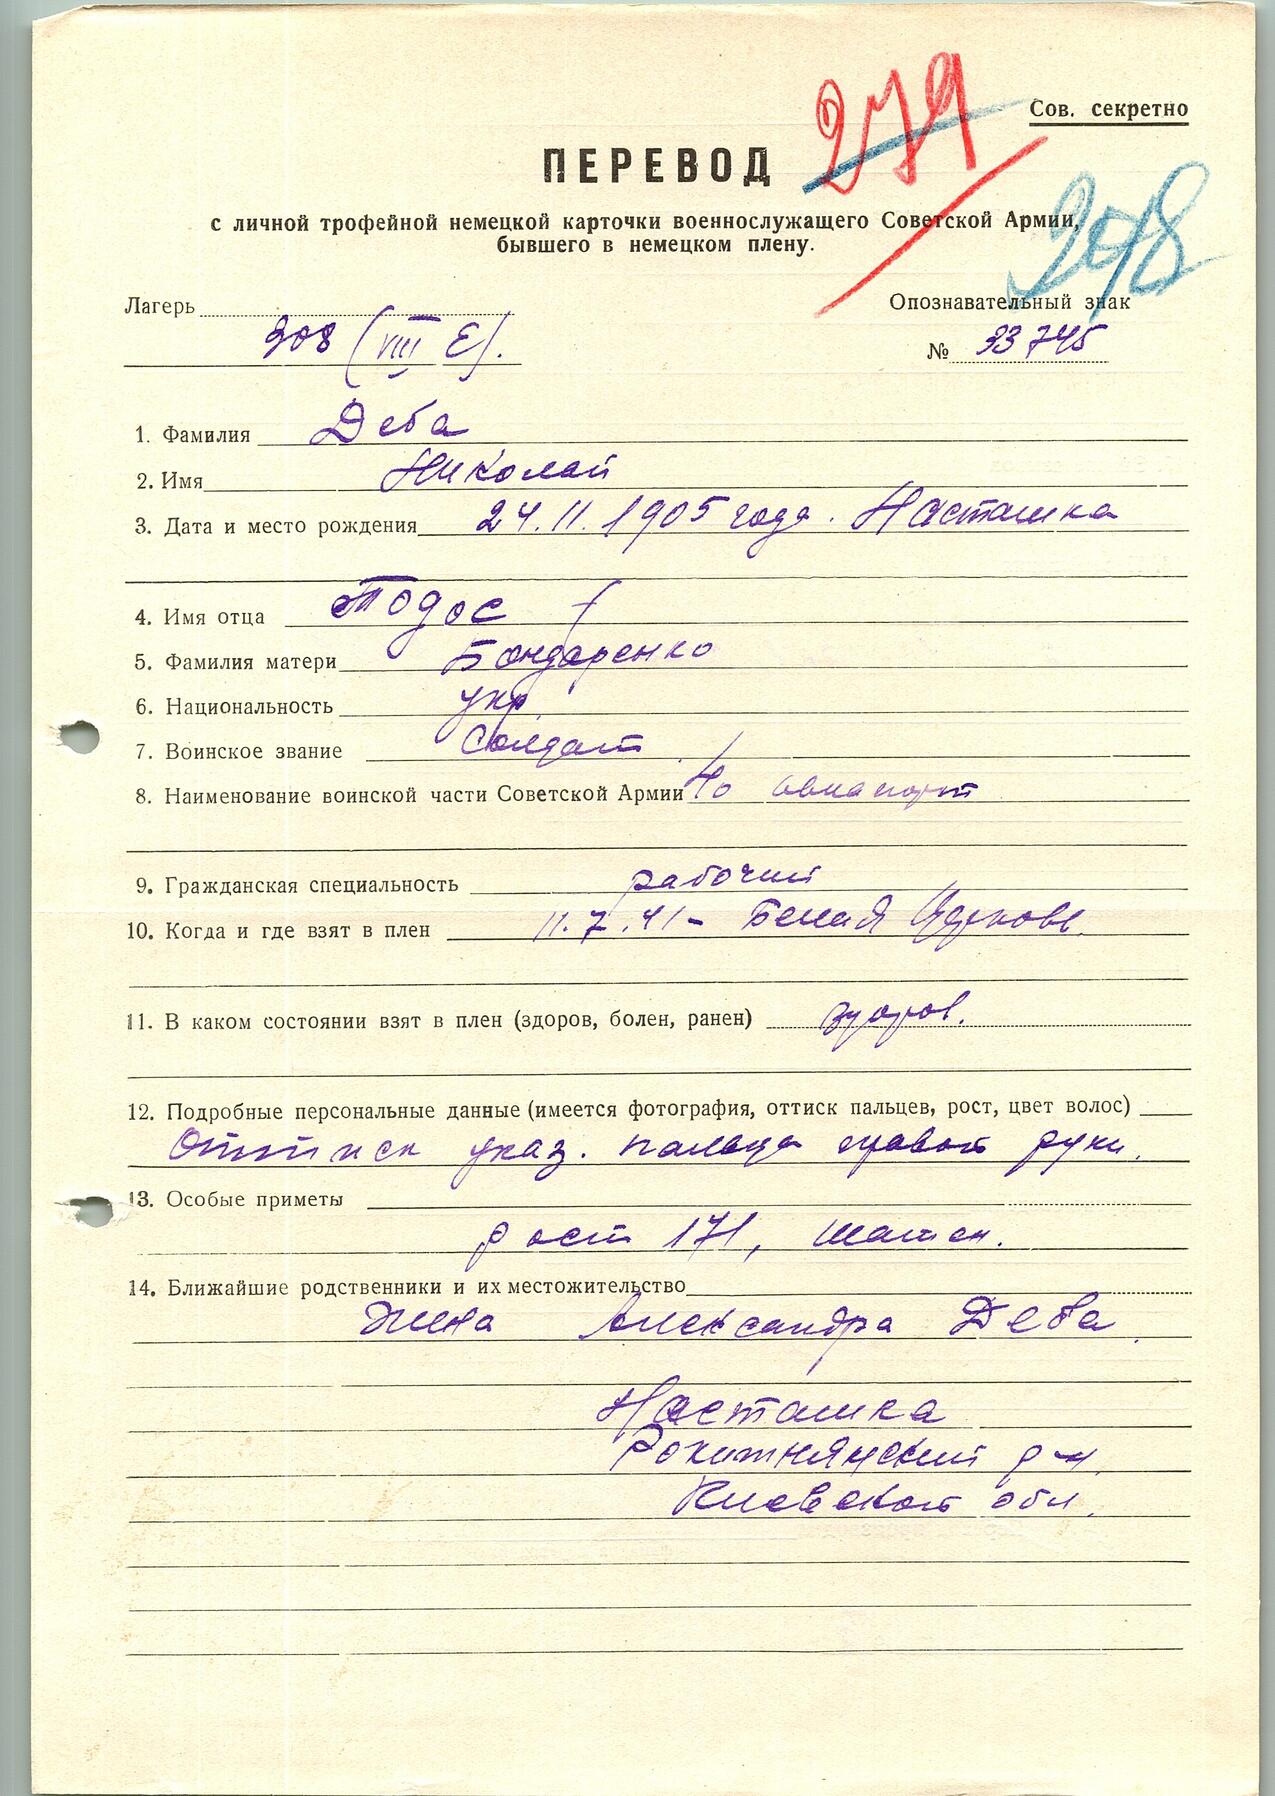 279
Сов. секретно
ПЕРЕВОД
278
с личной трофейной немецкой карточки военнослужащего Советской Армии,
бывшего в немецком плену.
Лагерь
308 (VIII E).
Опознавательный знак
№ 33745
1. Фамилия Деба
2. Имя Николай
3. Дата и место рождения 24.11.1905 года. Насташка
4. Имя отца Тодос
5. Фамилия матери Бондаренко
6. Национальность укр.
7. Воинское звание Солдат
8. Наименование воинской части Советской Армии
9. Гражданская специальность рабочий
10. Когда и где взят в плен 11.7.41 - Белая Церковь.
11. В каком состоянии взят в плен (здоров, болен, ранен) здоров.
12. Подробные персональные данные (имеется фотография, оттиск пальцев, рост, цвет волос)
Оттиск указ. пальца правой руки.
13. Особые приметы
рост 171, шатен.
14. Ближайшие родственники и их местожительство
Жена Александра Деба
Насташка
Рокитнянский р-н,
Киевской обл.